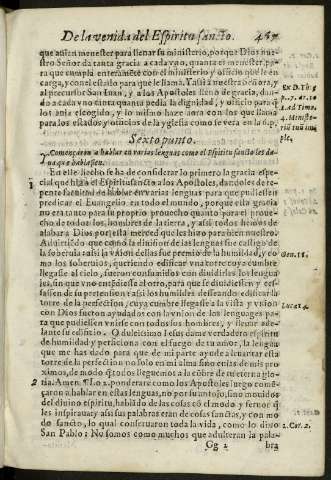 De la venida del Espiritu sancto.
que assi en menester para llenar su ministerio, porque Dios nue-
stro Señor da tanta gracia a cada vno, quanta es menester pa-
ra que cumpla enteramẽte con el ministerio y officio que le en
carga, y con el estado para que le llama. Y assi a nuestra Señora, y
al precursor San Iuan, y a los Apostoles lleno de gracia, dan-
do a cada vno tanta quanta pedia la dignidad, y officio para q̃
los auia escogido, y lo mismo haze aora con los que llama
para los estados y officios de la yglesia como se vera en la 6. p.
Ex D. Th. 3
1. ad Timo.
4. Ministe-
rium tuũ im
ple.
Sexto punto.
Y començaron a hablar en varias lenguas como el Espiritu sancto les da-
ua que hablassen.
1 En este hecho se ha de considerar lo primero la gracia espe-
cial que hizo el Espiritu sancto a los Apostoles, dandoles de re-
pente facultad de hablar en varias lenguas para que pudiessen
predicar el Euangelio en todo el mundo, porque esta gracia
no era tanto para su proprio prouecho quanto para el proue-
cho de todos los hombres de la tierra, y assi todos hemos de
alabar a Dios por esta merced que les hizo por bien nuestro.
Aduirtiẽdo que como la diuision de las lenguas fue castigo de
la soberuia assi la vniõ dellas fue premio de la humildad, y co
mo los soberuios, queriendo edificar vna torre cuya cumbre
llegasse al cielo, fueron confundidos con diuidirles los lengua
jes, sin que vno entẽdiesse al otro, para que se diuidiessen y ces-
sassen de su pretension: assi los humildes desseando edificar la
torre de la perfeccion, cuya cumbre llegasse a la vista y vniõ
con Dios fueron ayudados con la vniõ de los lenguages pa-
ra que pudiessen vnirse con todos los hombres, y lleuar ade-
lante su edificio. O dulcissimo Iesus dame verdadero espiritu
de humildad y perficiona con el fuego de tu amor, la lengua
que me has dado para que de mi parte ayude a leuantar esta
torre de la perfection no solo en mi alma sino en las de mis pro
ximos, de modo q̃ todos lleguemos a la cũbre de eterna glo-
ria. Amen.
Gen. 11.
Luc. 14.
2 ¶ Lo 2. ponderare como los Apostoles luego come-
çaron a hablar en estas lenguas, no por su antojo, sino mouidos
del diuino espiritu, hablãdo de las cosas cõ el modo y feruor q̃
les inspiraua; y assi sus palabras eran de cosas sanctas, y con mo
do sancto, lo qual conseruaron toda la vida, como lo dixo
San Pablo: No somos como muchos que adulteran la pala-
2. Cor. 2.
Gg 2
bra